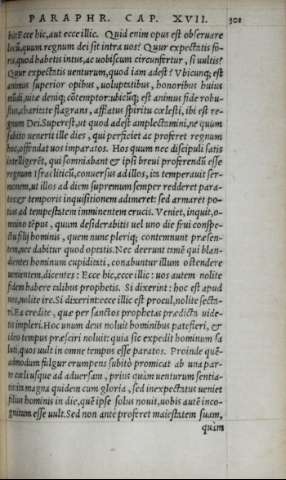 PARAPHR. CAP. XVII. 301
hic: Ecce hic, aut ecce illic. Quid enim opus est obseruare
locũ, quum regnum dei sit intra uos? Quur expectatis fo-
ris, quod habetis intus, ac uobiscum circunfertur, si uultis?
Quur expectatis uenturum, quod iam adest? Vbicunq; est
animus superior opibus, uoluptatibus, honoribus huius
mũdi, uitæ deniq; cõtemptor: ubicũq; est animus fide robu-
stus, charitate flagrans, afflatus spiritu cœlesti, ibi est re-
gnum Dei. Superest, ut quod adest amplectamini, ne quum
subito uenerit ille dies, qui perficiet ac proferet regnum
hoc, offendat uos imparatos. Hos quum nec discipuli satis
intelligerẽt, qui somniabant & ipsi breui proferendũ esse
regnum Israëliticũ, conuersus ad illos, ita temperauit ser-
monem, ut illos ad diem supremum semper redderet para-
tos: & temporis inquisitionem adimeret: sed armaret po-
tius ad tempestatem imminentem crucis. Veniet, inquit, o-
mnino tẽpus, quum desiderabitis uel uno die frui conspe-
ctu filij hominis, quem nunc pleriq; contemnunt præsen-
tem, nec dabitur quod optatis. Nec deerunt tamẽ qui blan-
dientes hominum cupiditati, conabuntur illum ostendere
uenientem, dicentes: Ecce hic, ecce illic: uos autem nolite
fidem habere eilibus prophetis. Si dixerint: hoc est apud
nos, nolite ire. Si dixerint: ecce illic est procul, nolite secta-
ri. Ea credite, quæ per sanctos prophetas prædicta uide-
tis impleri. Hoc unum deus noluit hominibus patefieri, &
ideo tempus præsciri noluit: quia sic expedit hominum sa
luti, quos uult in omne tempus esse paratos. Proinde quẽ-
admodum fulgur erumpens subitò promicat ab una par-
te cœli usque ad aduersam, prius quàm uenturum sentia-
tis: in magna quidem cum gloria, sed inexpectatus ueniet
filius hominis in die, quẽ ipse solus nouit, uobis autẽ inco-
gnitum esse uult. Sed non antè proferet maiestatem suam,
quàm